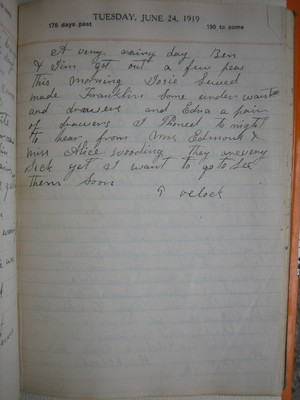 TUESDAY, JUNE 24, 1919
175 days past 190 to come
A very rainy day Ben
& Jim got out a few peas
this morning Josie Sewed
made Franklin some under waists
and drawers and Edna a pair
of drawers I Phoned to night
to hear from Mrs Edmond &
Miss Alice Wooding They are very
sick yet I want to go to See
them Soon
9 oclock